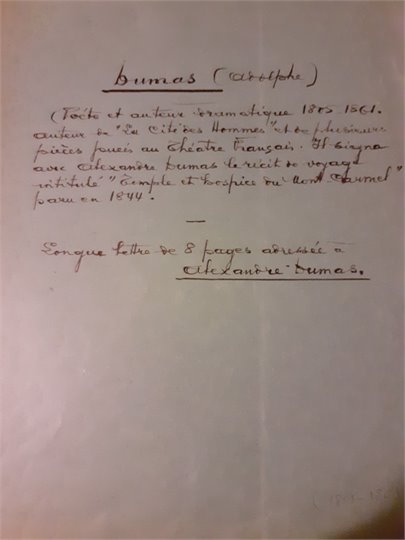 Dumas (Adolphe)
(Poète et auteur dramatique 1805-1861.
auteur de "La Cité des Hommes" et de plusieurs
pièces joués au Théâtre Français. Il signa
avec Alexandre Dumas le récit de voyage
intitulé "Temple et Hospice du Mont Carmel"
paru en 1844.
Longue lettre de 8 pages adressée à
Alexandre Dumas.